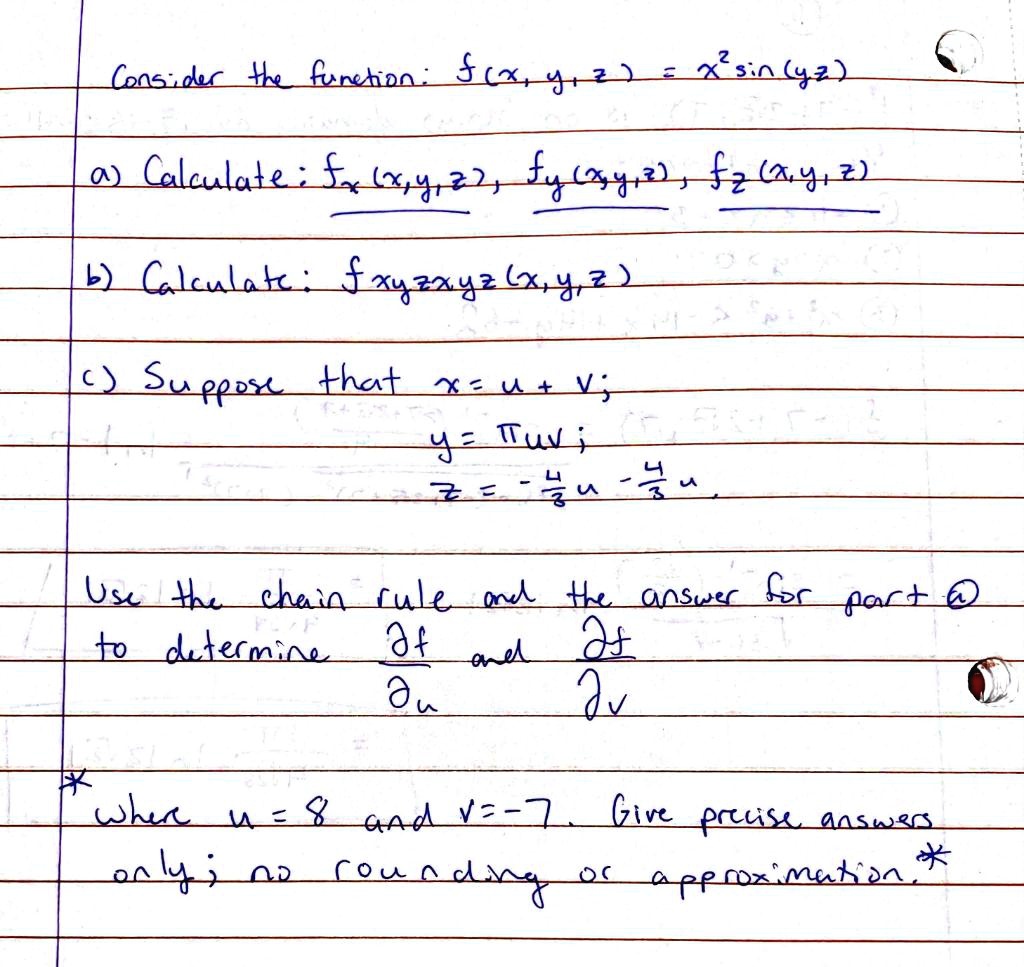 Consider the function: f(x, y, z) = x² sin(yz)
a) Calculate: fx (x, y, z), fy (x, y, z), fz (x, y, z)
b) Calculate: fxyzxyz (x, y, z)
c) Suppose that x = u + v;
y = πuv;
z = -4/3 u - 4/3 u.
Use the chain rule and the answer for part ⓐ
to determine ∂f/∂u and ∂f/∂v
* where u = 8 and v = -7. Give precise answers
only; no rounding or approximation.*